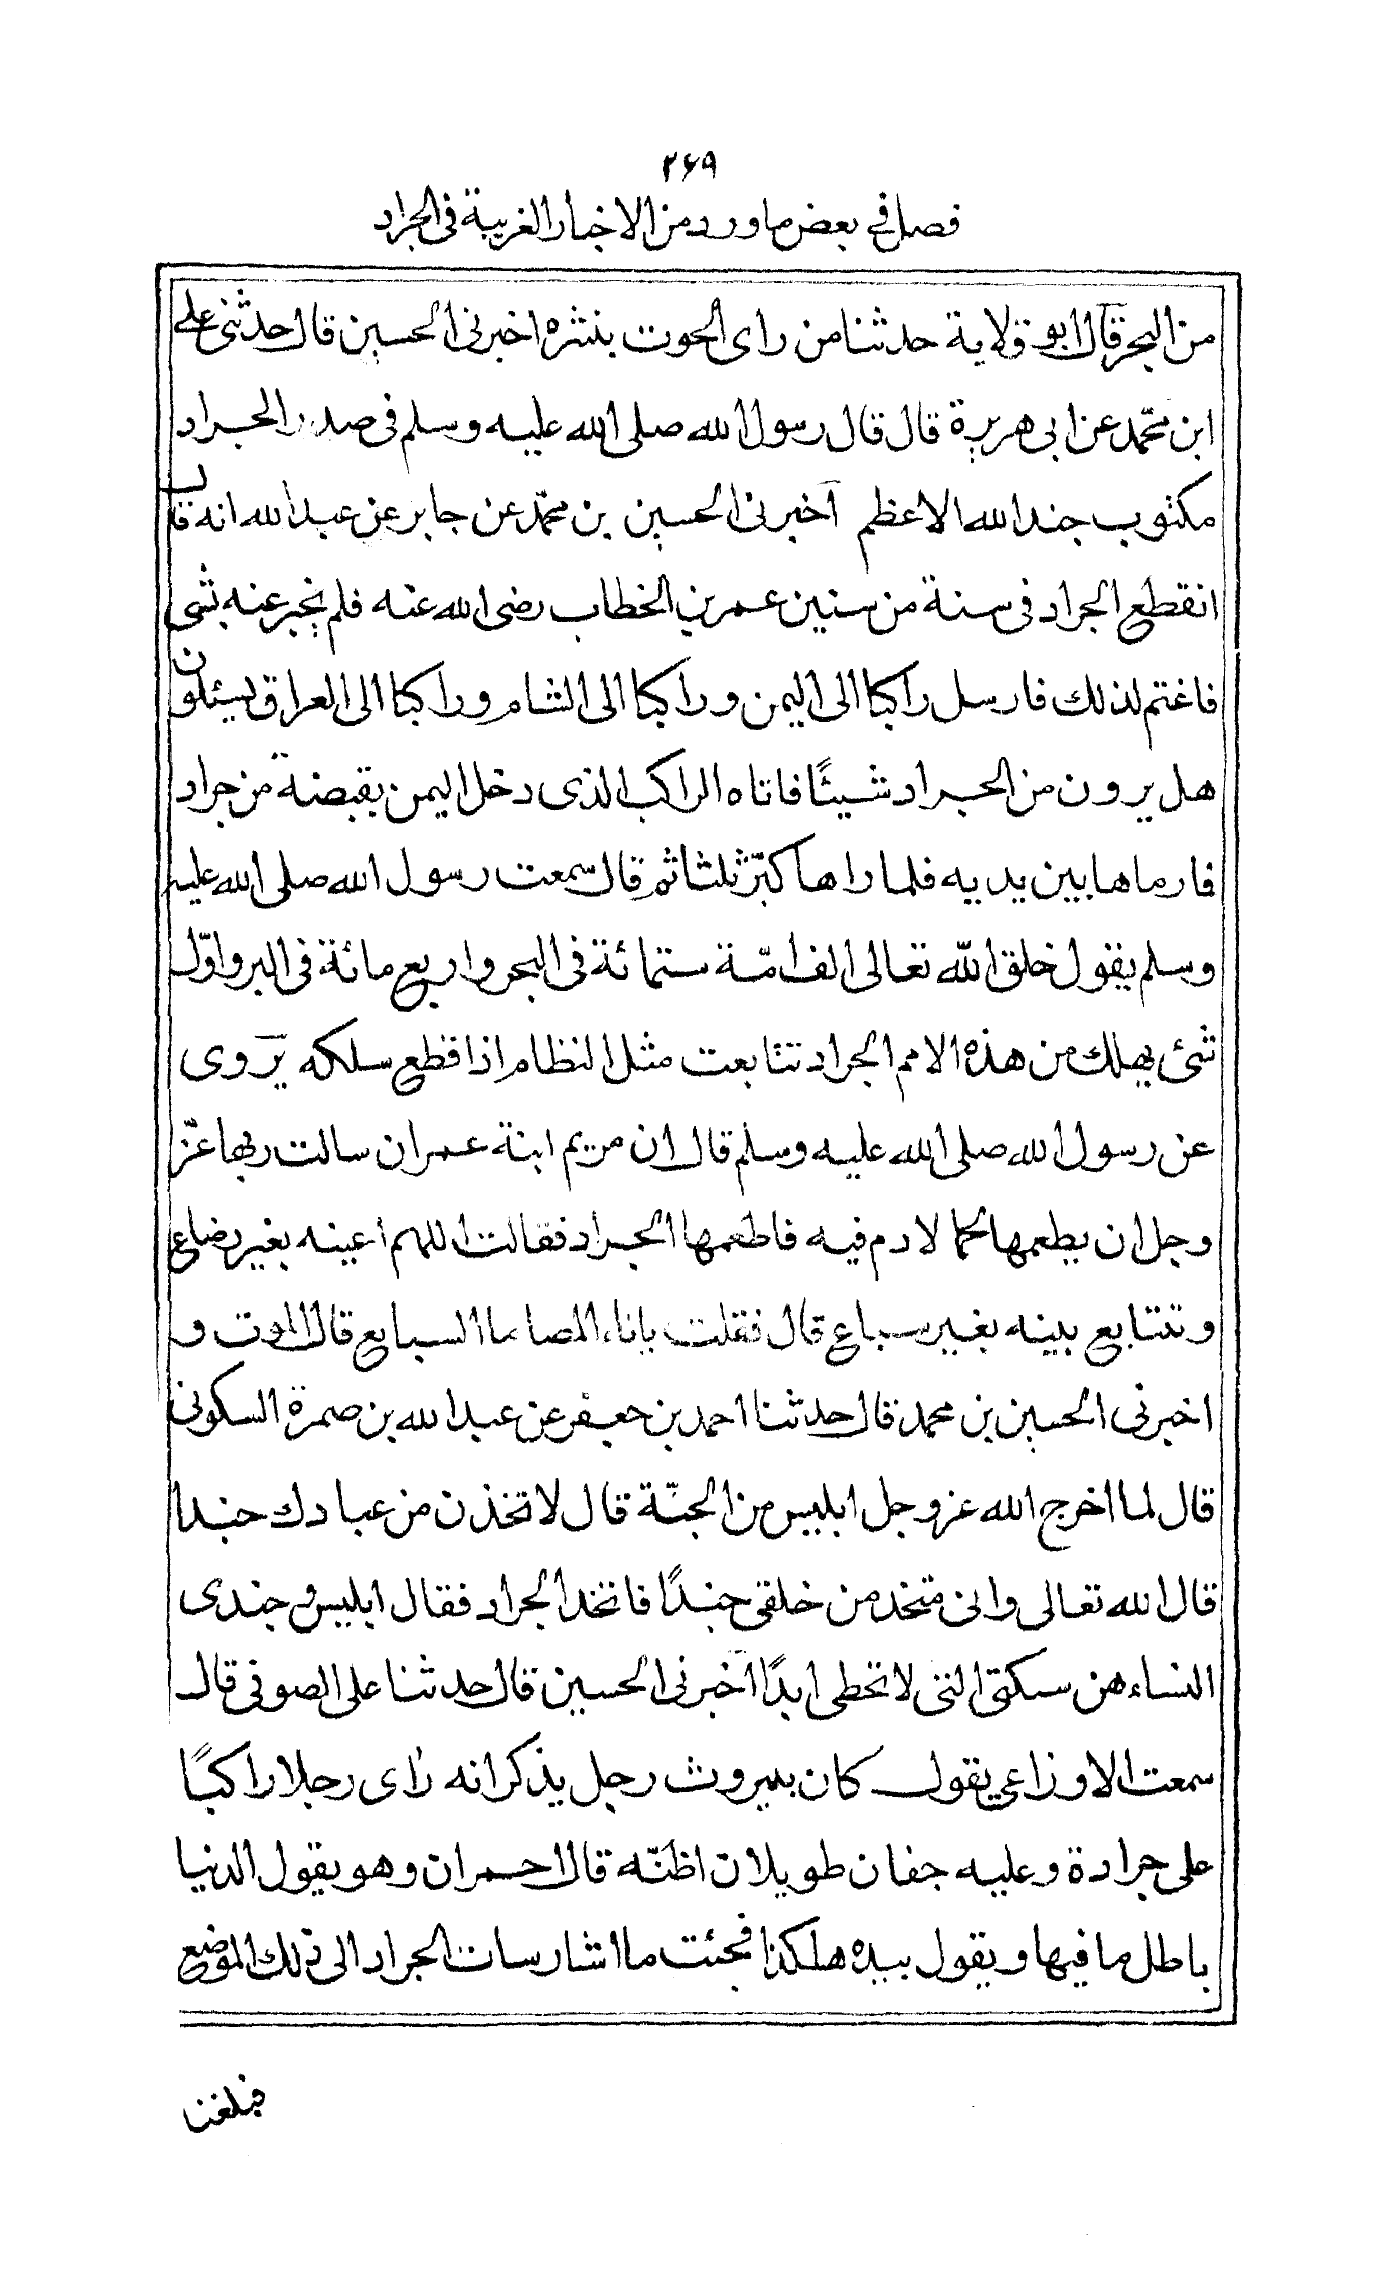 ٢٦٩
فصل في بعض ما ورد من الاخبار الغريبة في الجراد
من البحر قال ابو قلابة حدثنا من راى الحوت ينثره اخبرنى الحسين قال حدثنى على
ابن محمّد عن ابى هريرة قال قال رسول الله صلى الله عليه وسلم فى صدر الجراد
مكتوب جند الله الاعظم اخبرنى الحسين بن محمّد عن جابر عن عبد الله انه قال
انقطع الجراد فى سنة من سنين عمر بن الخطاب رضى الله عنه فلم يخبر عنه بشى
فاغتم لذلك فارسل راكبا الى اليمن وراكبا الى الشام وراكبا الى العراق يسئلون
هل يرون من الجراد شيئًا فاتاه الراكب الذى دخل اليمن بقبضة من جراد
فارماها بين يديه فلما راها كبّر ثلثا ثم قال سمعت رسول الله صلى الله عليه
وسلم يقول خلق الله تعالى الف امّة ستمائة فى البحر واربع مائة فى البر واوّل
شئ يهلك من هذه الامم الجراد تتابعت مثل النظام اذا قطع سلكه يروى
عن رسول الله صلى الله عليه وسلم قال ان مريم ابنة عمران سالت ربها عزّ
وجل ان يطعمها لحما لا دم فيه فاطعمها الجراد فقالت اللهم اعينه بغير رضاع
وتتابع بينه بغير سباع قال فقلت ما السبايع قال الموت و
اخبرنى الحسين بن محمد قال حدثنا احمد بن جعفر عن عبد الله بن صمرة السكونى
قال لما اخرج الله عز وجل ابليس من الجنّة قال لاتخذن من عبادك جندا
قال الله تعالى وانى متخذ من خلقى جندًا فاتخذ الجراد فقال ابليس وجندى
النساء هن سكتى التى لا تخطى ابدًا اخبرنى الحسين قال حدثنا على الصوفى قال
سمعت الاوزاعى يقول كان ببيروت رجل يذكر انه راى رجلا راكبًا
على جرادة وعليه جفان طويلان اظنّه قال احمران وهو يقول الدنيا
باطل ما فيها ويقول بيده هلكذا فجئت ما اشار سات الجراد الى ذلك الموضع
فبلغنا